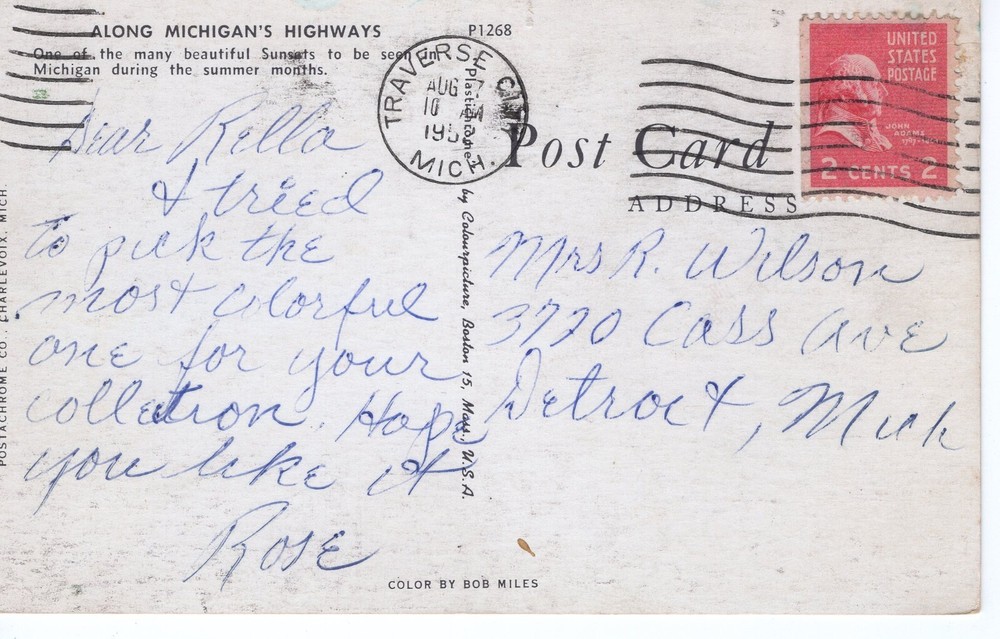 ALONG MICHIGAN'S HIGHWAYS
P1268
One of the many beautiful Sunsets to be seen in
Michigan during the summer months.
TRAVERSE CITY
AUG 7
10 AM
195
MICH.
UNITED
STATES
POSTAGE
JOHN
ADAMS
2 CENTS 2
Post Card
ADDRESS
Dear Rella
I tried
to pick the
most colorful
one for your
collection. Hope
you like it
Rose
Mrs R. Wilson
3770 Cass Ave
Detroit, Mich
Plastichrome by Colourpicture, Boston 15, Mass., U.S.A.
POSTACHROME CO., CHARLEVOIX, MICH.
COLOR BY BOB MILES